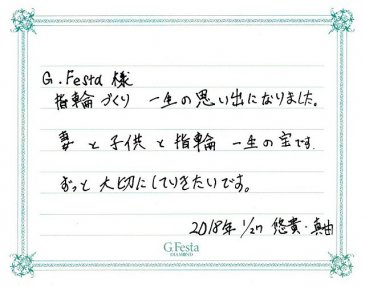 G.Festa 様
指輪づくり 一生の思い出になりました。
妻と子供と指輪 一生の宝です.
ずっと大切にしていきたいです。
2018年 1/27 悠貴・真由
G.Festa
DIAMOND